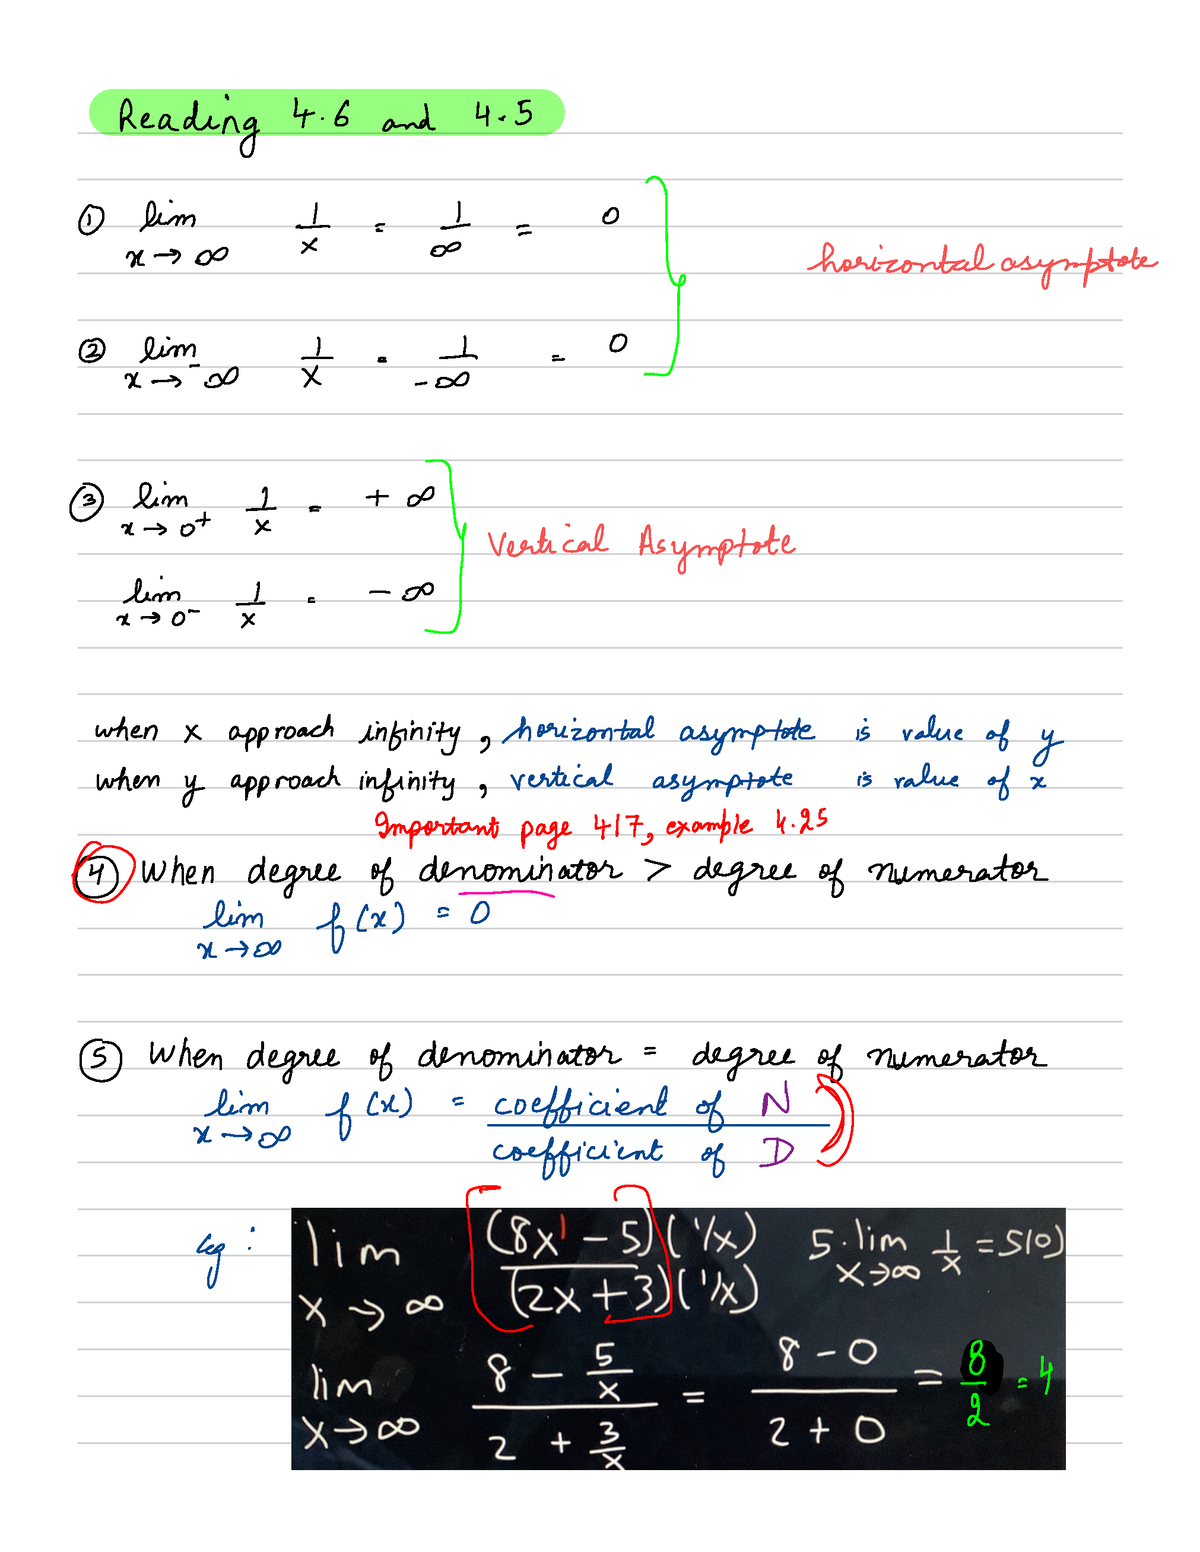 Reading 4.6 and 4.5
① lim x→∞ 1/x = 1/∞ = 0
horizontal asymptote
② lim x→-∞ 1/x = 1/-∞ = 0
③ lim x→0⁺ 1/x = +∞
Vertical Asymptote
lim x→0⁻ 1/x = -∞
when x approach infinity, horizontal asymptote is value of y
when y approach infinity, vertical asymptote is value of x
Important page 417, example 4.25
④ When degree of denominator > degree of numerator
lim x→∞ f(x) = 0
⑤ When degree of denominator = degree of numerator
lim x→∞ f(x) = coefficient of N / coefficient of D
eg:
lim x→∞ (8x¹ - 5)(1/x) / (2x + 3)(1/x)
5·lim x→∞ 1/x = 5(0)
lim x→∞ 8 - 5/x / 2 + 3/x = 8 - 0 / 2 + 0 = 8/2 = 4